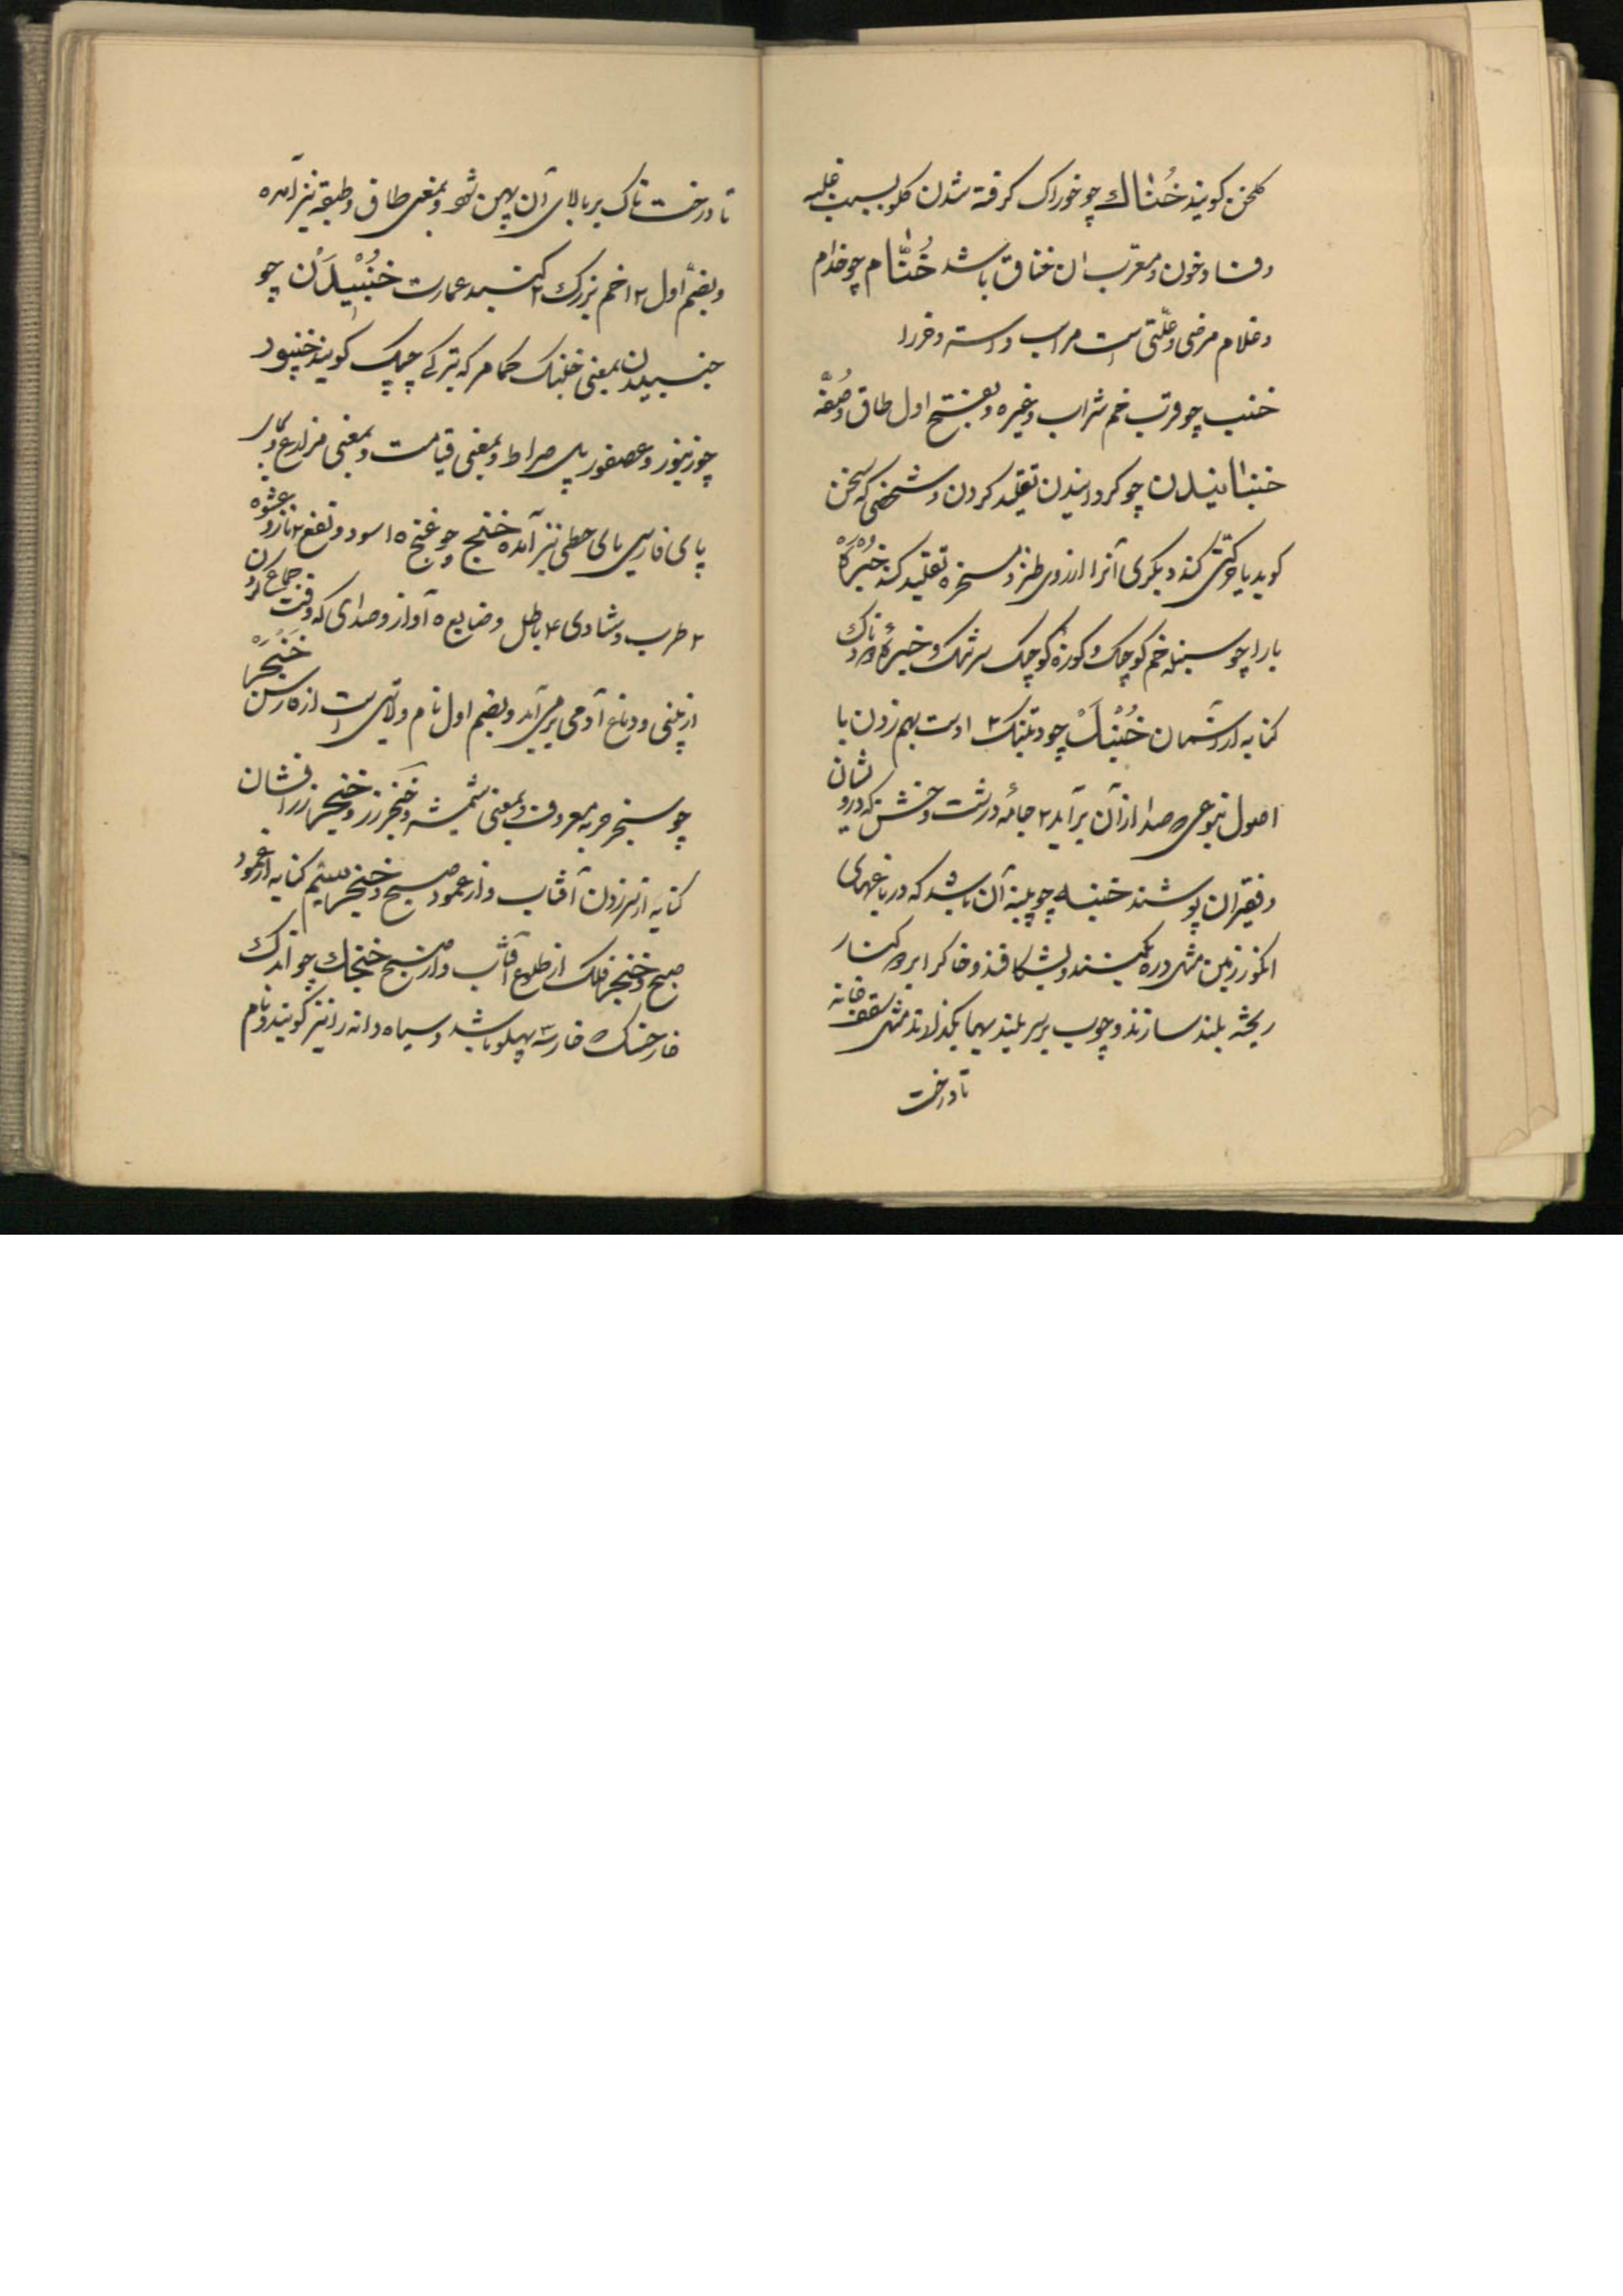 کلخن کویند خُنٰاك چو خوراک کرفته شدن کلو بسبب غلبه
و فساد خون و معرّب ان خناق باشد خُنّٰام چو خدام
و غلام مرضی و علّتی است مر اسب و استر و خر را
خنب چو قرب خم شراب و غیره و بفتح اول طاق و صُفّه
خنبانیدن چو کردانیدن تقلید کردن و شخصی که سخن
کوید یا حرکتی کند دیکری آنرا از روی طنز و مسخره تقلید کند خنُبْرَه
با را چو سنبله خم کوچک و کوزهٔ کوچک سر تنک و خنبرهٔ دودناک
کنایه از آسمان خُنْبَكْ چو دنبک ۳ ادست بهم زدن با
اصول بنوعی که صدا از آن بر آید ۲ جامهٔ درشت و خشن که درویشان
و فقیران پوشند خنبه چو پنبه آن باشد که در باغهای
انکور زمین مثل دره بکنند و بشکافند و خاکرا بر کنار
ریخته بلند سازند و چوب بر سر بلندیها بکذارند مثل سقف خانه
تا درخت
تا درخت تاک بر بالای آن پهن شود و بمعنی طاق و طبقه نیز آمده
و بضمّ اول ۱۲ خم بزرك ۲ کنبد عمارت خنُبیْدَنْ چو
جنبیدن بمعنی خنبک حمام که بترکی چپک کویند خنپور
چو زنبور و عصفور پل صراط و بمعنی قیامت و بمعنی مزارع و بر
پای فارسی یای حطی نیز آمده خنج چو غنج ۱ سود و نفع ۲ ناز و عشوه
۳ طرب و شادی ۴ باطل و ضایع ۵ آواز و صدای که وقت جماع کردن
از بینی و دماغ آدمی بر می آید و بضم اول نام ولایتی است از فارس خَنْجَرْ
چو سنجر حربه معروف و بمعنی شمشیر و خنجر زر و خنجر زرافشان
کنایه از تیر زدن آفتاب و از عمود صبح و خنجر سیم کنایه از عمود
صبح و خنجر فلک از طلوع آفتاب و از صبح خنجك چو اندك
خار خسک که خار سه پهلو باشد و سیاه دانه را نیز کویند و نام